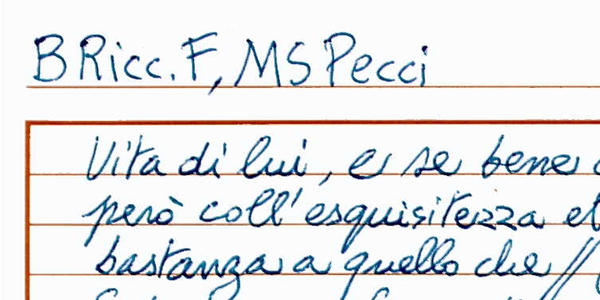 B Ricc. F, MS Pecci
Vita di lui, e se bene
però coll'esquisitezza et
bastanza a quello che //